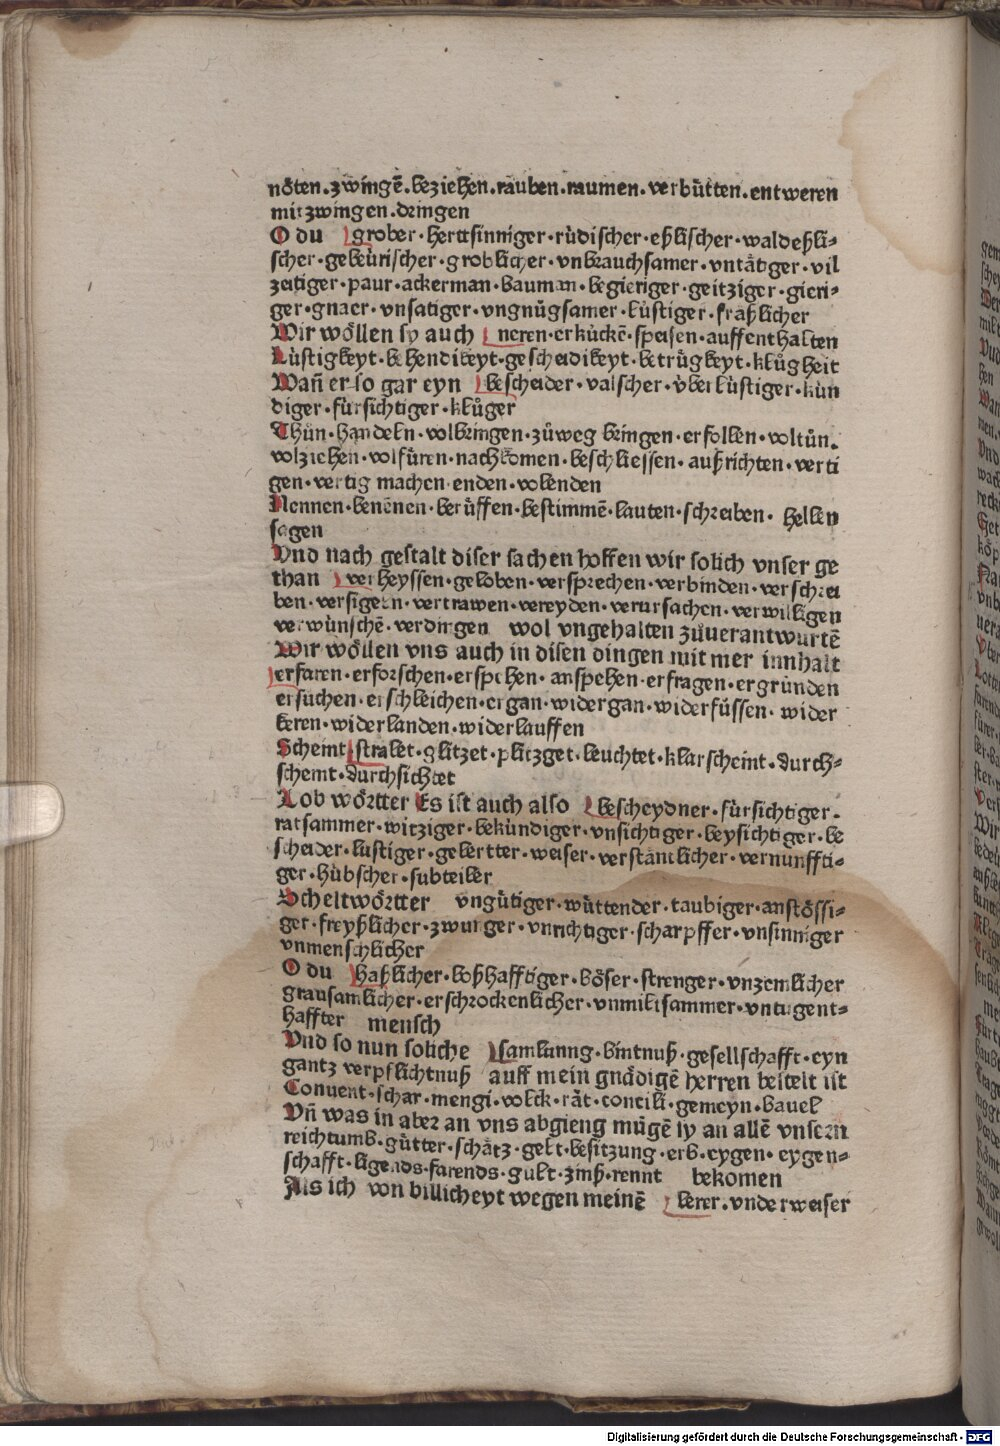 nöten·zwingē·beziehen·rauben·raumen·verbütten·entweren
mitzwingen·dringen
O du grober·herttsinniger·rüdischer·eßlischer·waldeßli⸗
scher·gebeürischer·groblicher·vnbrauchsamer·vntätiger·vil
zeitiger·paur·ackerman·bauman·begieriger·geitziger·gieri⸗
ger·gnaer·vnsatiger·vngnügsamer·lüstiger·fräßlicher
Wir wöllen sy auch neren·erkückē·speisen·auffenthalten
Lüstigkeyt·behendikeyt·gescheidikeyt·betrügkeyt·klůgheit
Wañ er so gar eyn bescheider·valscher·v̈berlüstiger·kün
diger·fürsichtiger·klůger
Thůn·handeln·volbringen·zůweg bringen·erfolben·voltůn·
volziehen·volfüren·nachkomen·beschliessen·außrichten·verti
gen·vertig machen·enden·volenden
Nennen·benēnen·berůffen·bestimmē·lauten·schreiben·hellen
sagen
Vnd nach gestalt diser sachen hoffen wir solich vnser ge
than verheyssen·geloben·versprechen·verbinden·verschrei
ben·versigeln·vertrawen·vereyden·verursachen·verwilligen
verwünschē·verdingen wol vngehalten zůuerantwurtē
Wir wöllen vns auch in disen dingen mit mer innhalt
erfaren·erforschen·erspehen·anspehen·erfragen·ergründen
ersuchen·erschleichen·ergan·widergan·widerfüssen·wider
keren·widerlanden·widerlauffen
Scheint stralet·glitzet·plitzget·leuchtet·klarscheint·durch⸗
scheint·durchsichtet
Lob wörtter Es ist auch also bescheydner·fürsichtiger·
ratsammer·witziger·bekündiger·vnsichtiger·beysichtiger·be
scheider·lustiger·gelertter·weiser·verstäntlicher·vernunffti⸗
ger·hübscher·subteiler
Scheltwörtter vngütiger·wüttender·taubiger·anstössi⸗
ger·freyßlicher·zwunger·vnrichtiger·scharpffer·vnsinniger
vnmenschlicher
O du haßlicher·boßhafftiger·böser·strenger·vnzemlicher
grausamlicher·erschrockenlicher·vnmilisammer·vntugent⸗
haffter mensch
Vnd so nun soliche samlunng·bintnuß·gesellschafft·eyn
gantz verpflichtnuß auff mein gnädigē herren bestelt ist
Conuent·schar·mengi·volck·rät·concili·gemeyn·bauel
Vñ was in aber an vns abgieng mügē sy an allē vnsern
reichtumb·gütter·schätz·gelt·besitzung·erb·eygen·eygen⸗
schafft·ligends·farends·gult·zinß·rennt bekomen
Als ich von billicheyt wegen meinē lerer·vnderweiser
Digitalisierung gefördert durch die Deutsche Forschungsgemeinschaft · DFG